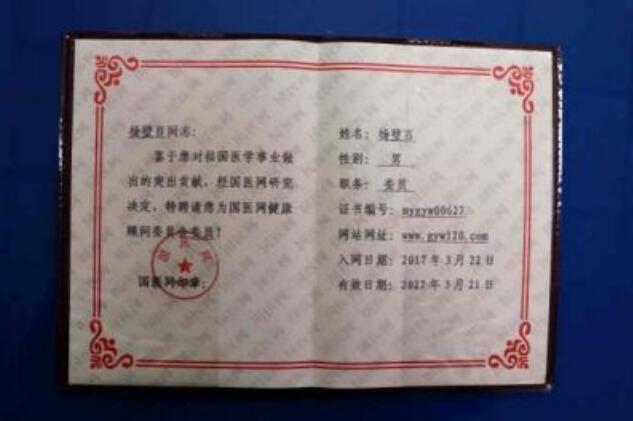 杨璧亘同志:
鉴于您对祖国医学事业做
出的突出贡献, 经国医网研究
决定, 特聘请您为国医网健康
顾问委员会委员!
国医网印章:
国医网
姓名: 杨璧亘
性别: 男
职务: 委员
证书编号: mygyw00627
网站网址: www.gyw120.com
入网日期: 2017年3月22日
有效日期: 2027年3月21日